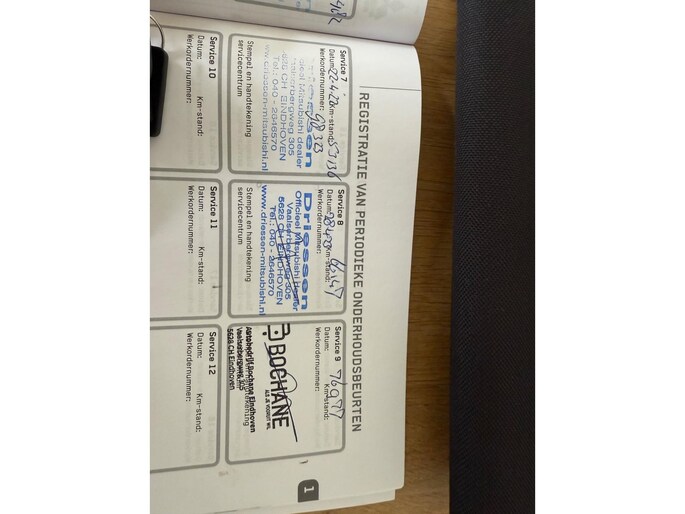 REGISTRATIE VAN PERIODIEKE ONDERHOUDSBEURTEN
Service 7
Datum: 22-4-22 Km-stand: 53136
Werkordernummer: 98323
Driessen
Officieel Mitsubishi dealer
Vaalserbergweg 305
5628 CH EINDHOVEN
Tel.: 040 - 2646570
www.driessen-mitsubishi.nl
Stempel en handtekening
servicecentrum
Service 8
Datum: Km-stand:
Werkordernummer:
Driessen
Officieel Mitsubishi Dealer
Vaalserbergweg 305
5628 CH EINDHOVEN
Tel.: 040 - 2646570
www.driessen-mitsubishi.nl
Stempel en handtekening
servicecentrum
Service 9
Datum: Km-stand:
Werkordernummer:
BOCHANE
ALS JE VOORUIT WIL
Autobedrijf Bochane Eindhoven
Vaalserbergweg 305
5628 CH Eindhoven
Service 10
Datum: Km-stand:
Werkordernummer:
Service 11
Datum: Km-stand:
Werkordernummer:
Service 12
Datum: Km-stand:
Werkordernummer:
1